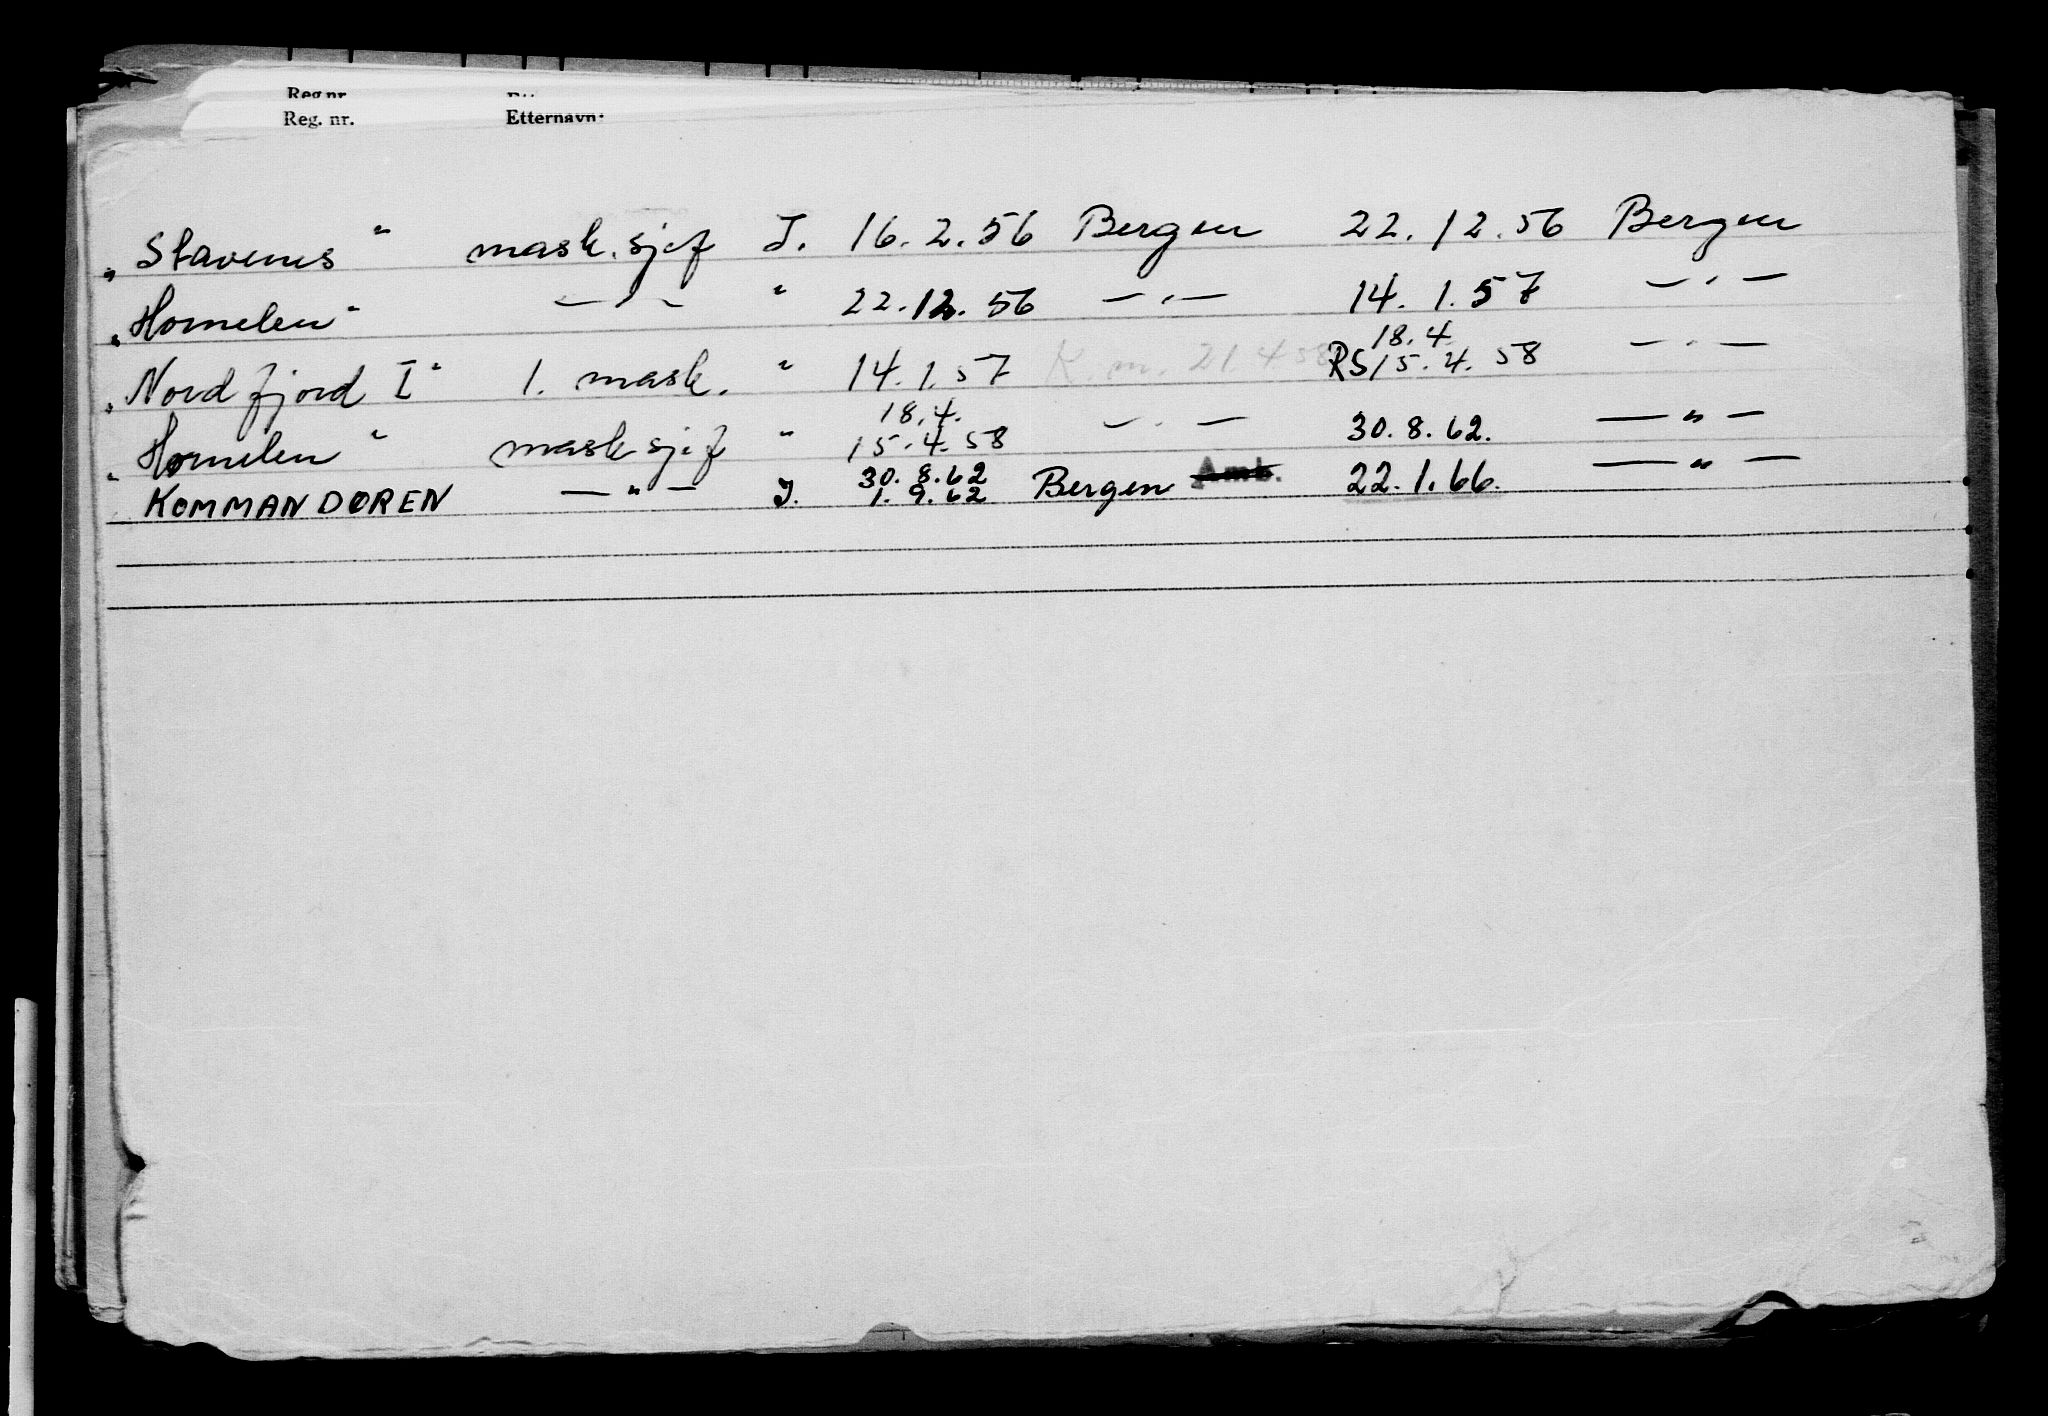 Reg nr.
Reg. nr. Etternavn:
„Stavenes" mask.sjef I. 16.2.56 Bergen 22.12.56 Bergen
„Hornelen" — „ — " 22.12.56 — „ — 14.1.57 — „ —
18.4.
„Nordfjord I" 1. mask. " 14.1.57 K.m. 21.4.58 RS 15.4.58 — „ —
18.4.
„Hornelen" mask sjef " 15.4.58 — „ — 30.8.62. — " —
30.8.62
KOMMANDØREN — " — I. 1.9.62 Bergen Amb. 22.1.66. — " —